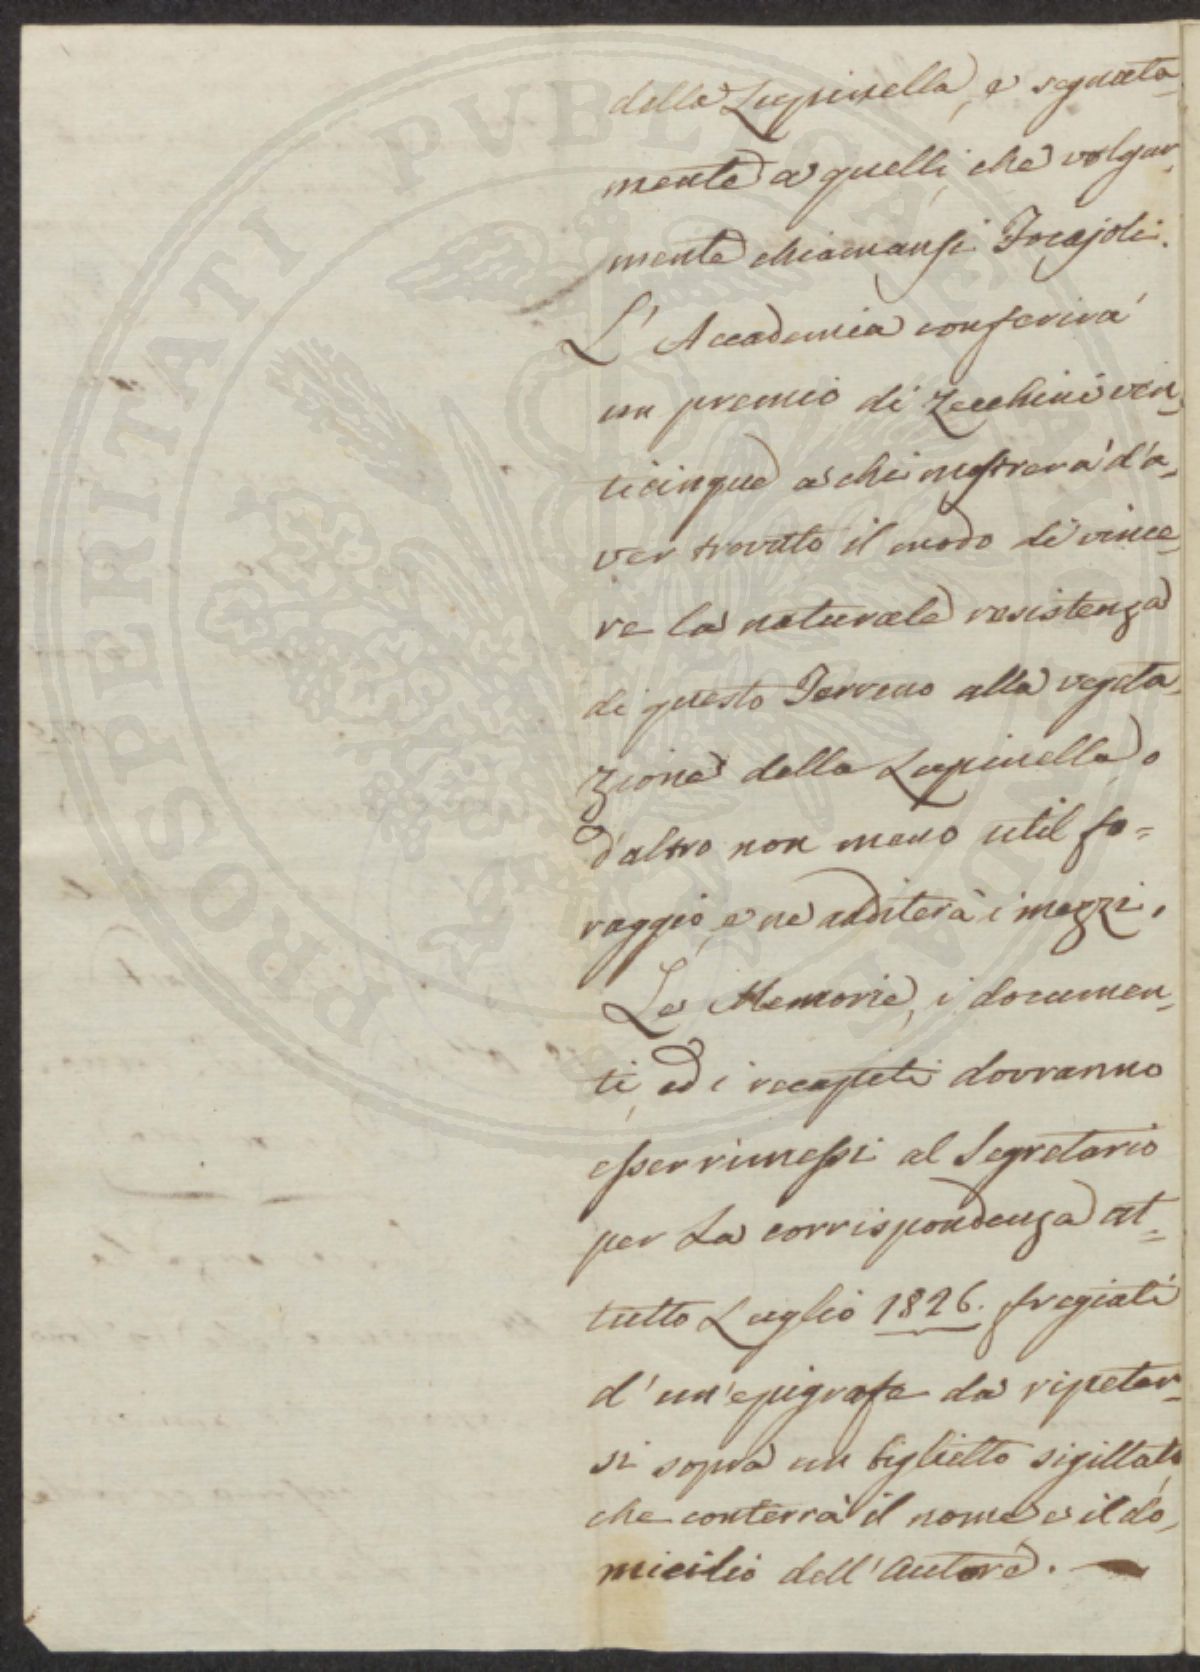 della Lupinella, e segnata-
mente a quelli, che volgar-
mente chiamansi Focajoli.
L'Accademia conferirà
un premio di Zecchini ven-
ticinque a chi mostrerà d'a-
ver trovato il modo di vince-
re la naturale resistenza
di questo Terreno alla vegeta-
zione della Lupinella, o
d'altro non meno util fo=
raggio, e ne additerà i mezzi.
Le Memorie, i documen-
ti, ed i recapiti dovranno
esser rimessi al Segretario
per la corrispondenza at=
tutto Luglio 1826. fregiati
d'un'epigrafe da ripeter-
si sopra un biglietto sigillato,
che conterrà il nome e il do-
micilio dell'Autore. —
PROSPERITATI PUBLICAE AUGENDAE